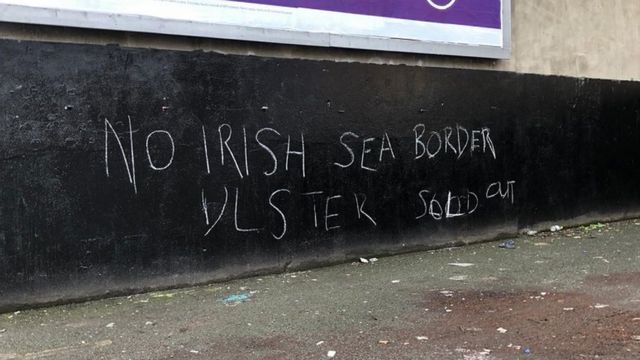 NO IRISH SEA BORDER
ULSTER SOLD OUT